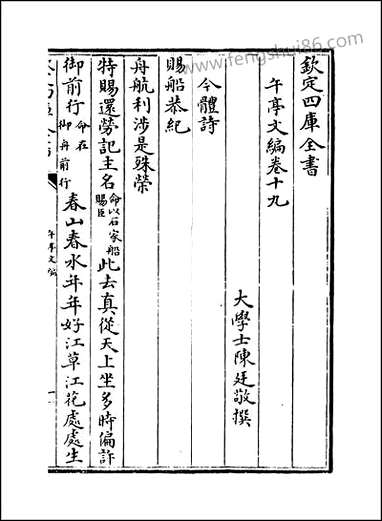 欽定四庫全書
午亭文編卷十九
大學士陳廷敬撰
今體詩
賜船恭紀
舟航利涉是殊榮
特賜還勞記主名命以石家船賜臣此去真從天上坐多時偏許
御前行命在御舟前行春山春水年年好江草江花處處生
午亭文編
www.fengshui86.com